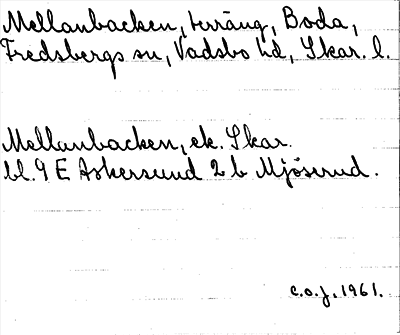 Mellanbacken, terräng, Boda,
Fredsbergs sn, Vadsbo hd, Skar. l.
Mellanbacken, ek. Skar.
bl. 9 E Askersund 2 b Mjöserud.
C.O.J. 1961.